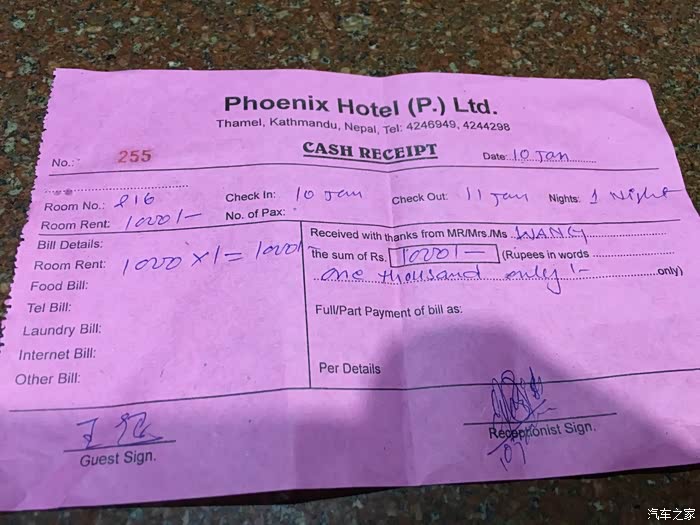 Phoenix Hotel (P.) Ltd.
Thamel, Kathmandu, Nepal, Tel: 4246949, 4244298
CASH RECEIPT
No.: 255
Date: 10 Jan
Room No.: 216 Check In: 10 Jan Check Out: 11 Jan Nights: 1 Night
Room Rent: 1000/- No. of Pax:
Bill Details:
Room Rent: 1000 x 1 = 1000/
Food Bill:
Tel Bill:
Laundry Bill:
Internet Bill:
Other Bill:
Received with thanks from MR/Mrs./Ms WANG
the sum of Rs. 1000/- (Rupees in words
one thousand only /- only)
Full/Part Payment of bill as:
Per Details
Guest Sign.
Receptionist Sign.
汽车之家